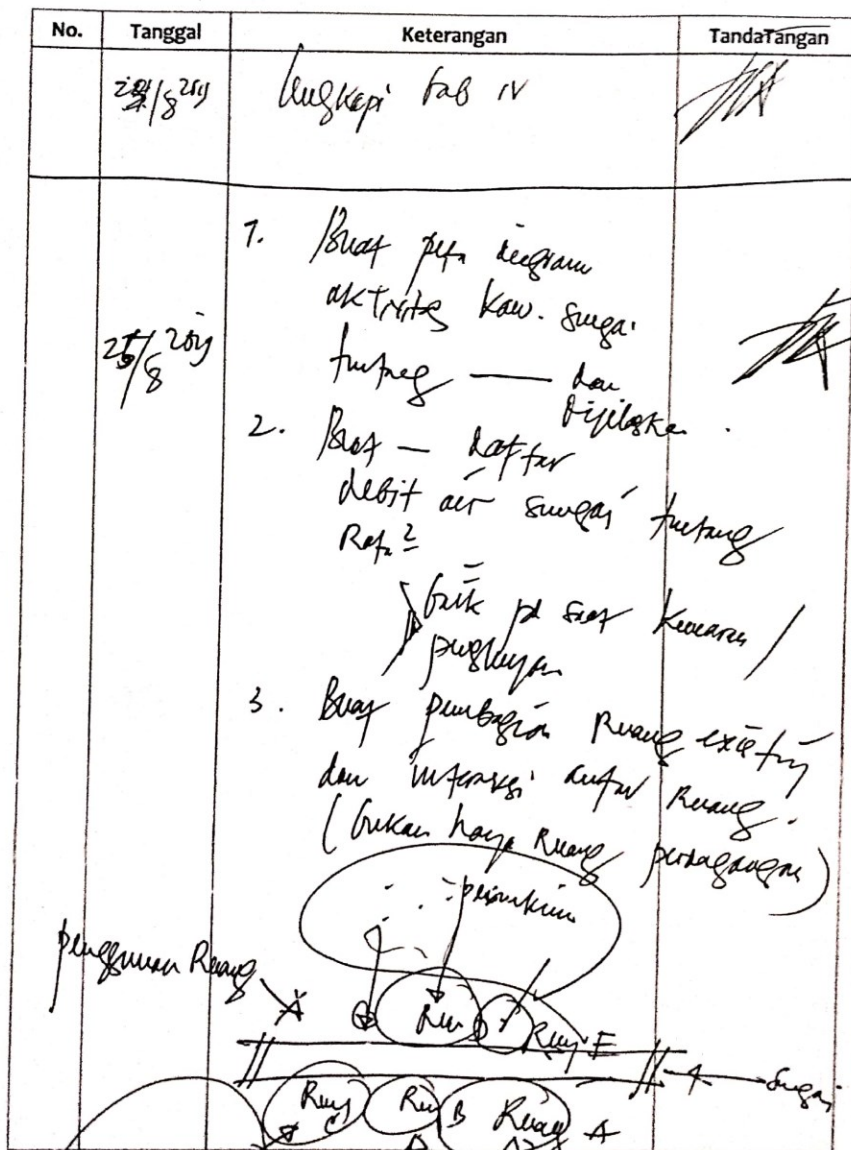 No. Tanggal Keterangan TandaTangan
/8 2019 lengkapi bab IV
1. Buat peta diagram
aktivitas kaw. sungai
25/8 2019
tuntang — dan
Dijelaskan.
2. Buat — daftar
debit air sungai tuntang
Rata2
baik pd saat kemarau /
penghujan
3. Buat pembagian Ruang existing
dan interaksi antar Ruang.
(bukan hanya Ruang perdagangan)
permukim
penggunaan Ruang
A Ru D Ruang E
Sungai
Ruang C Ru B Ruang A